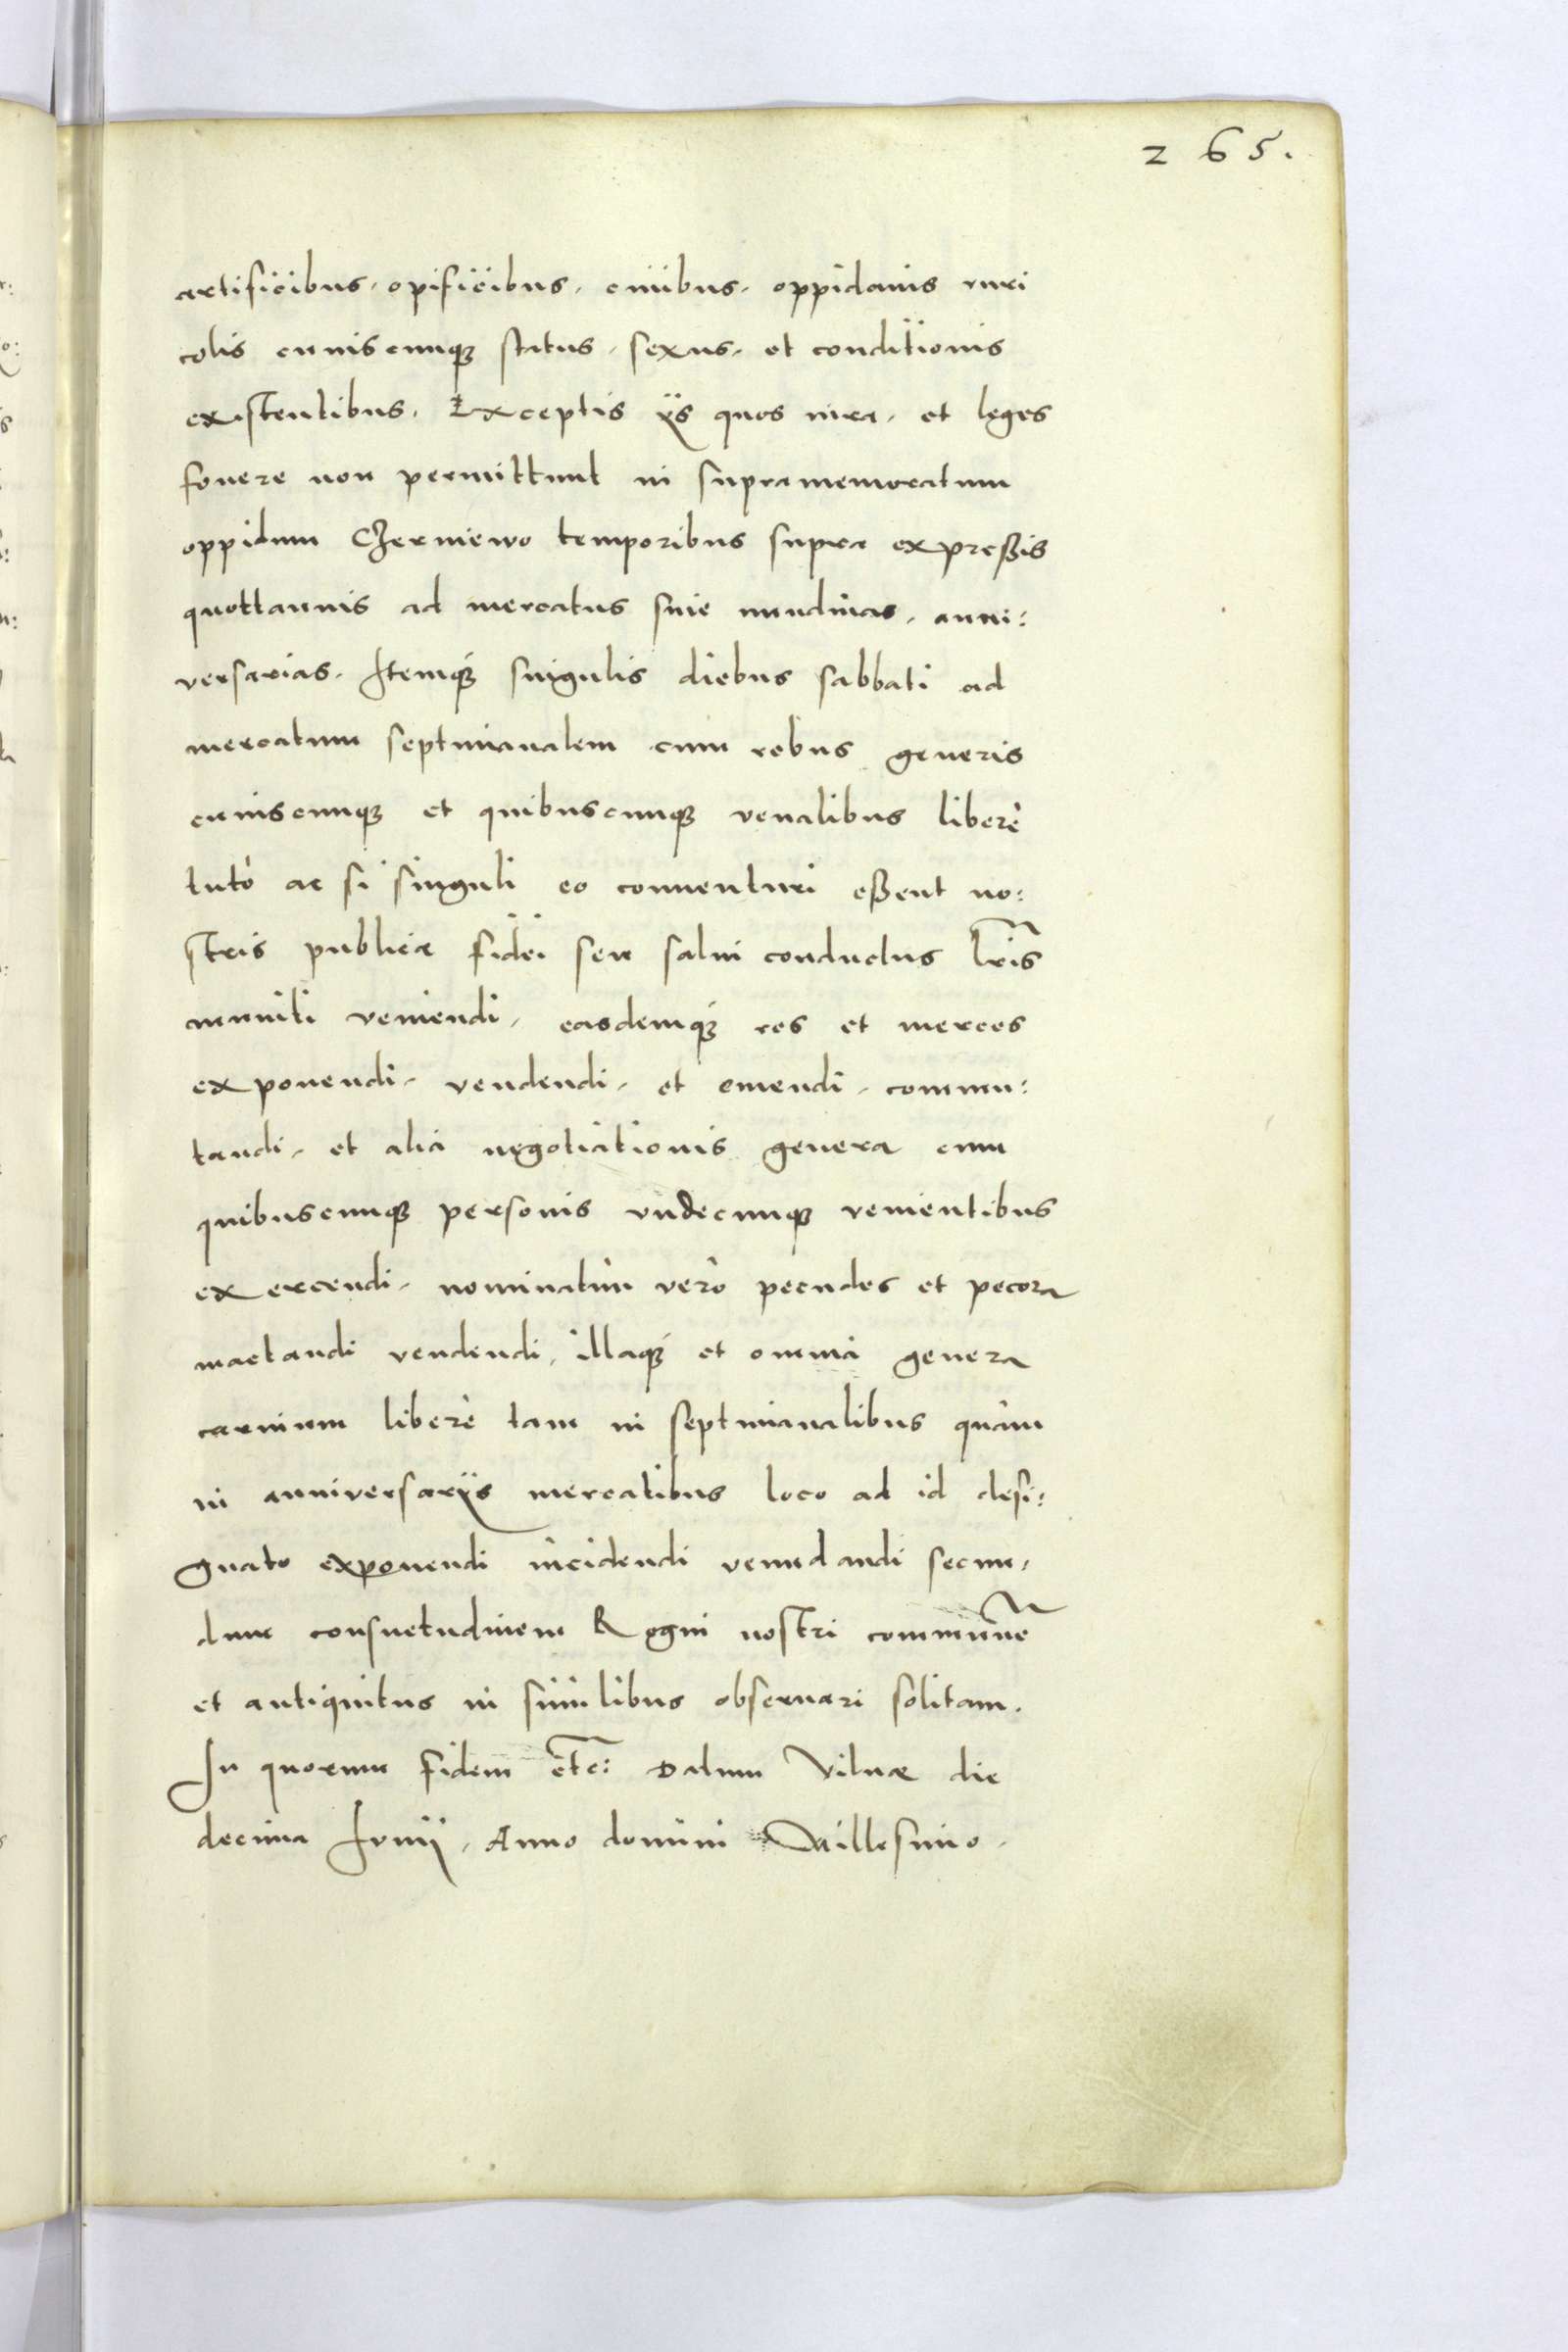 265.
artificibus, opificibus, ciuibus, oppidanis ruri
colis cuiuscunq; status, sexus, et conditionis
existentibus. Exceptis ijs quos iura, et leges
fouere non permittunt in supramemoratum
oppidum Czerniewo temporibus supra expreßis
quottannis ad mercatus siue nundinas, anni:
versarias. Itemq; singulis diebus sabbati ad
mercatum septimanalem cum rebus generis
cuiuscunq; et quibuscunq; venalibus liberè
tutò ac si singuli eo conuenturi eßent no:
stris publicæ fidei seu salui conductus lris
muniti veniendi, easdemq; res et merces
exponendi, vendendi, et emendi, commu:
tandi, et alia negotiationis genera cum
quibuscunq; personis vndecunq; venientibus
exercendi, nominatim verò pecudes et pecora
mactandi vendendi, illaq; et omnia genera
carnium liberè tam in septimanalibus quàm
in anniversarijs mercatibus loco ad id desi:
gnato exponendi incidendi venundandi secun,
dum consuetudinem Regni nostri commune
et antiquitus in similibus obseruari solitam.
In quorum fidem etc: Datum Vilnæ die
decima Iunij, Anno domini Millesimo.